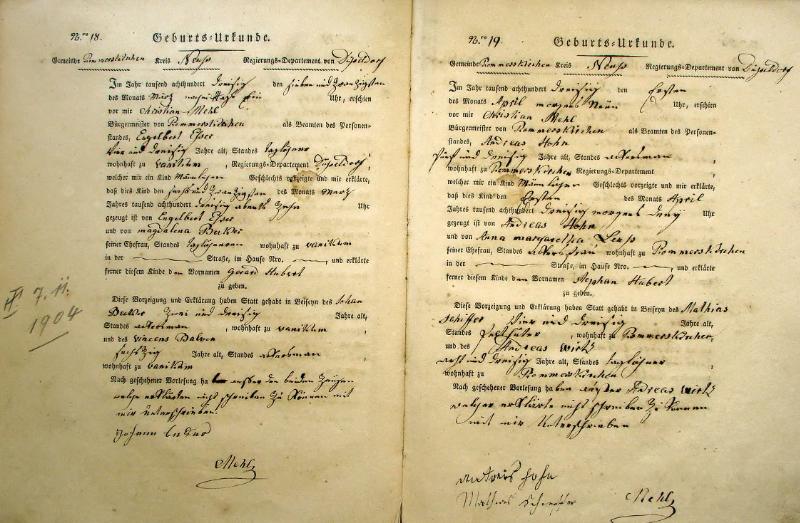 No. 18.
Geburts-Urkunde.
Gemeinde Rommerskirchen Kreis Neuss Regierungs-Departement von Düsseldorf
Im Jahr tausend achthundert dreisig den sieben und zwanzigsten
des Monats März nachmittags Uhr, erschien
vor mir Christian Mehl
Bürgermeister von Rommerskirchen als Beamten des Personen-
standes, Engelbert Esser
vier und dreisig Jahre alt, Standes taglöhner
wohnhaft zu vanikum, Regierungs-Departement Düsseldorf,
welcher mir ein Kind Männlichen Geschlechts vorzeigte und mir erklärte,
daß dies Kind den sechs und zwanzigsten des Monats März
Jahres tausend achthundert dreisig abends zehn Uhr
gezeugt ist von Engelbert Esser
und von magdalena
seiner Ehefrau, Standes taglöhnerin wohnhaft zu vanikum
in der Straße, im Hause Nro. , und erklärte
ferner diesem Kinde den Vornamen Gerard Hubert
zu geben.
Diese Vorzeigung und Erklärung haben Statt gehabt in Beiseyn des Johan
zwei und dreisig Jahre alt,
Standes ackersman , wohnhaft zu vanikum ,
und des
sechszig Jahre alt, Standes ackersman
wohnhaft zu vanikum
Nach geschehener Vorlesung ha ben ausser den beiden Zeugen
welche erklärten nicht schreiben zu können mit
mir unterschrieben
Johann
Mehl
7. 11.
1904
No. 19.
Geburts-Urkunde.
Gemeinde Rommerskirchen Kreis Neuss Regierungs-Departement von Düsseldorf
Im Jahr tausend achthundert dreisig den ersten
des Monats April morgens Neun Uhr, erschien
vor mir Christian Mehl
Bürgermeister von Rommerskirchen als Beamten des Personen-
standes, Andreas Hohn
fünf und dreisig Jahre alt, Standes ackersman ,
wohnhaft zu Rommerskirchen Regierungs-Departement
welcher mir ein Kind Männlichen Geschlechts vorzeigte und mir erklärte,
daß dies Kind den ersten des Monats April
Jahres tausend achthundert dreisig morgens drey Uhr
gezeugt ist von Andreas Hohn
und von Anna margaretha
seiner Ehefrau, Standes ackersfrau wohnhaft zu Rommerskirchen
in der Straße, im Hause Nro. , und erklärte
ferner diesem Kinde den Vornamen Stephan Hubert
zu geben.
Diese Vorzeigung und Erklärung haben Statt gehabt in Beiseyn des Mathias
Schiffer vier und dreisig Jahre alt,
Standes , wohnhaft zu Rommerskirchen,
und des Andreas wirtz
acht und dreisig Jahre alt, Standes taglöhner
wohnhaft zu Rommerskirchen
Nach geschehener Vorlesung haben ausser Andreas wirtz
welcher erklärte nicht schreiben zu können
mit mir unterschrieben
Andreas hohn
Mathias Schieffer
Mehl